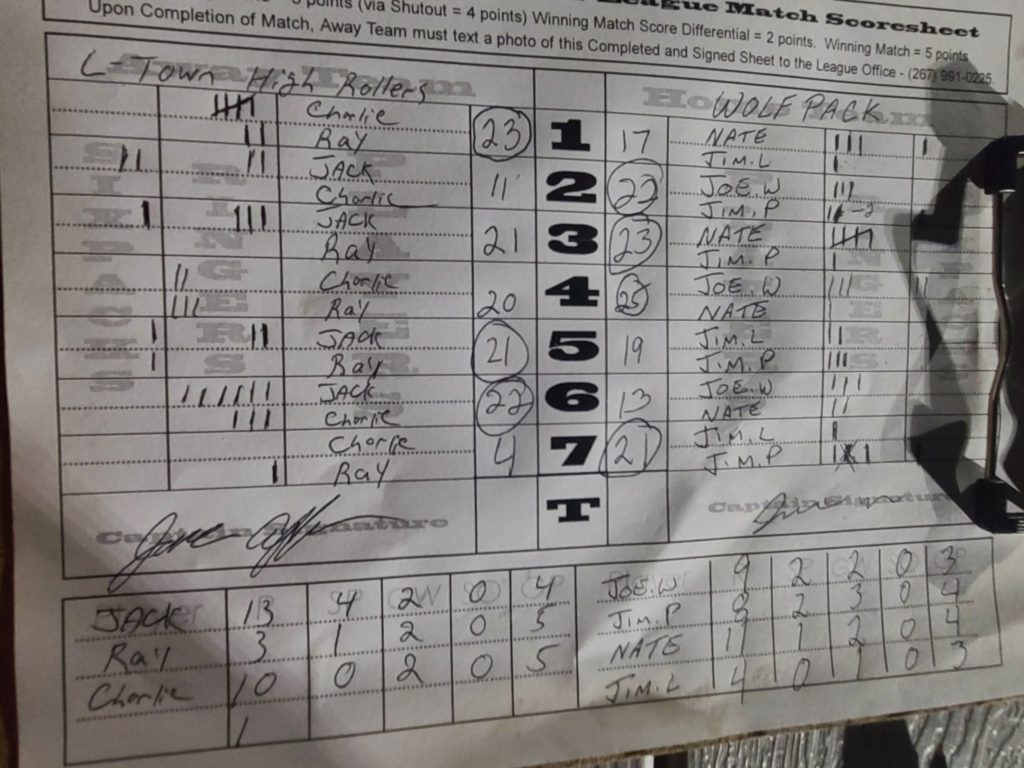 League Match Scoresheet
points (via Shutout = 4 points) Winning Match Score Differential = 2 points. Winning Match = 5 points
Upon Completion of Match, Away Team must text a photo of this Completed and Signed Sheet to the League Office - (267) 991-0225
L-Town High Rollers WOLF PACK
Charlie 23 1 17 NATE
Ray JIM.L
JACK 11 2 22 JOE.W
Charlie JIM.P
JACK 21 3 23 NATE
Ray JIM.P
Charlie 20 4 25 JOE.W
Ray NATE
JACK 21 5 19 JIM.L
Ray JIM.P
JACK 22 6 13 JOE.W
Charlie NATE
Charlie 4 7 21 JIM.L
Ray JIM.P
T
Captain Signature Captain Signature
JACK 13 4 2 0 4 JOE.W 9 2 2 0 3
Ray 3 1 2 0 5 JIM.P 8 2 3 0 4
Charlie 10 0 2 0 5 NATE 11 1 2 0 4
1 JIM.L 4 0 1 0 3